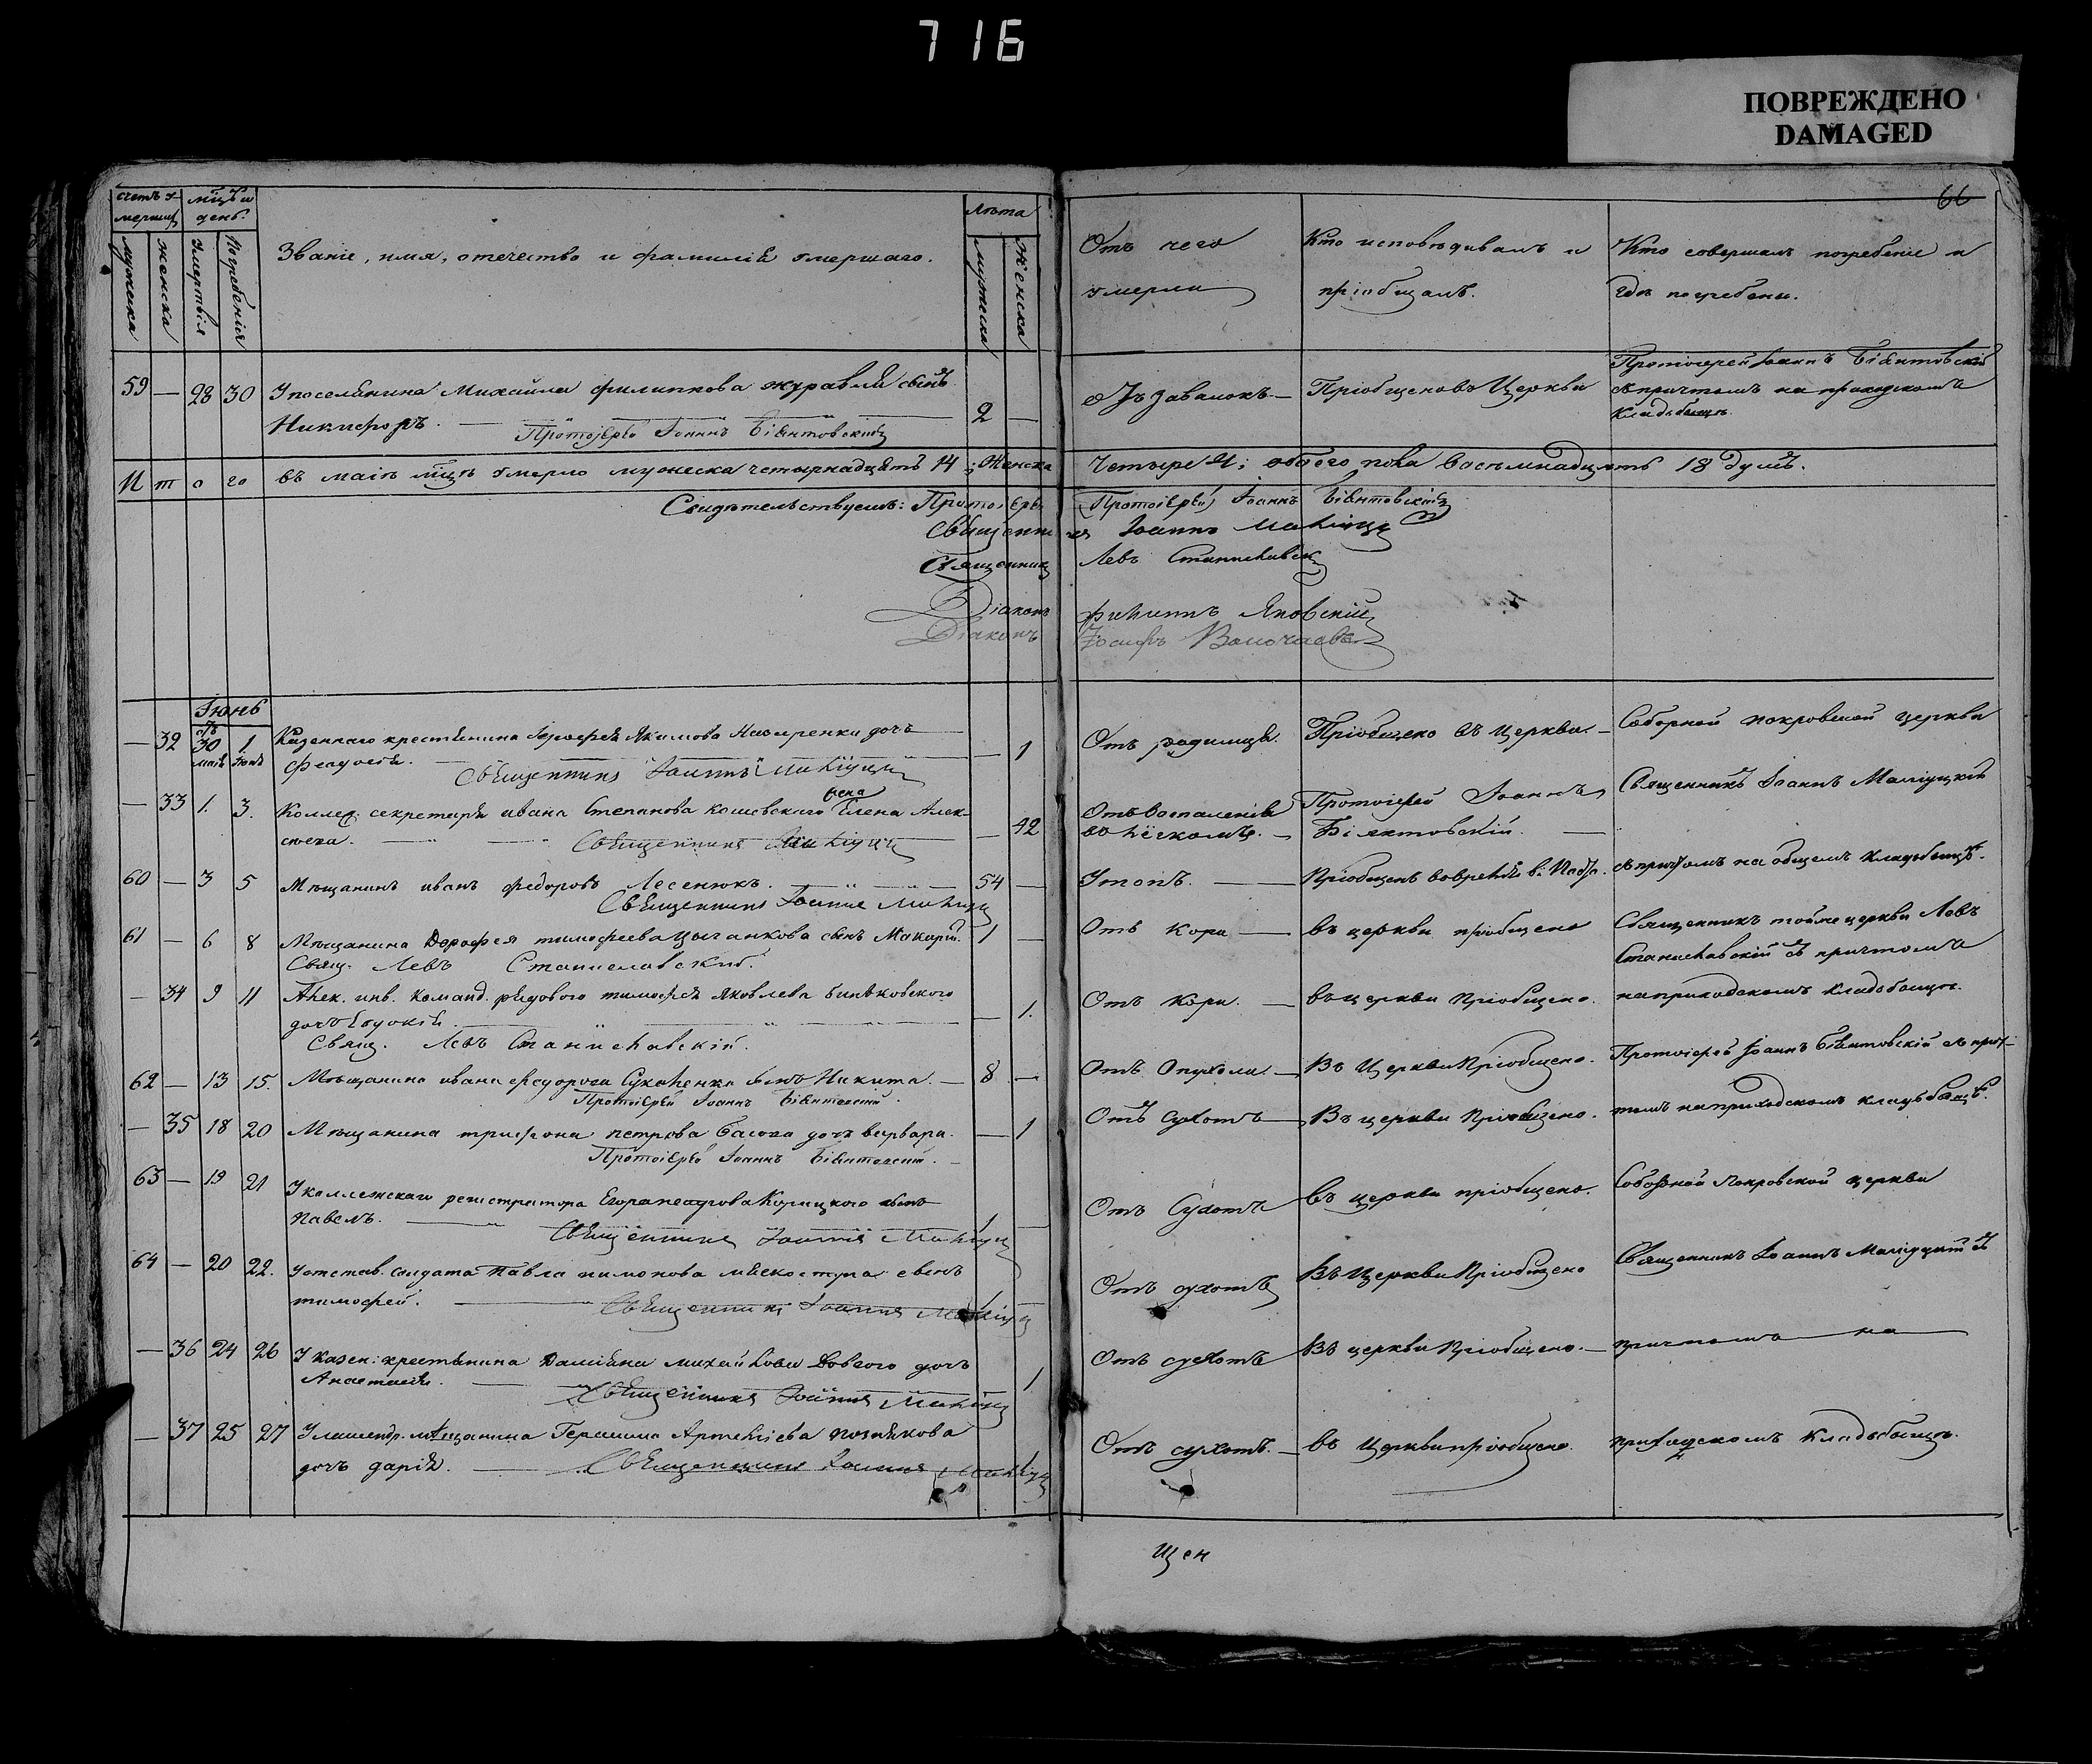 716
ПОВРЕЖДЕНО
DAMAGED
66
счетъ у-
мершихъ
мцъ и
день.
Лѣта
мужеска
женска
Умертвія
Погребенія
Званіе, имя, отечество и фамилія умершаго.
мужеска
Женска
Отъ чего
умерли
Кто исповѣдывалъ и
пріобщалъ.
Кто совершалъ погребеніе и
гдѣ погребены.
59 — 28 30 У поселянина Михаила Филиппова Журавля сынъ
Никифоръ. — 2 —
Протоіерей Іоаннъ Біянтовскій
Отъ Завалокъ — Пріобщенъ въ Церкви
Протоіерей Іоаннъ Біянтовскій
съ причтомъ на приходскомъ
кладбищѣ.
Итого въ маіѣ мцѣ умерло мужеска четырнадцять 14; Женска Четыре 4; обоего пола восемнадцять 18 душъ.
Свидѣтельствуемъ: Протоіерей Іоаннъ Біянтовскій
Священникъ Іоаннъ
Священникъ Левъ Станиславскій
Діаконъ Филиппъ Яновскій
Діаконъ Іосифъ
Іюнь
— 32 30 мая 1 Іюня Казеннаго крестьянина Якимова дочь
Феодосія. — 1
Священникъ Іоаннъ
Отъ родимца. Пріобщено въ Церкви — Соборной покровской церкви
— 33 1. 3. Коллеж. секретаря Ивана Степанова жена Елена Алек-
сѣева. — 42
Священникъ
Отъ воспаленія
Протоіерей Іоаннъ
Біянтовскій.
Священникъ Іоаннъ
60 — 3 5 Мѣщанинъ иванъ Федоровъ Лесенюкъ. 54 —
Священникъ Іоаннъ
Утопъ. — Пріобщенъ
съ причтомъ на общемъ кладбищѣ.
61 — 6 8 Мѣщанина Дорофея тимофеева Цыганкова сынъ Макарій. 1 —
Свящ. Левъ Станиславскій.
Отъ Кори — въ церкви пріобщено
Священникъ тойже церкви Левъ
Станиславскій съ причтомъ
— 34 9 11 инв. команд. рядового тимофея Яковлева
дочь Евдокія — 1.
Свящ. Левъ Станиславскій.
Отъ Кори. — въ церкви пріобщено.
на приходскомъ кладбищѣ.
62 — 13 15. Мѣщанина ивана Федорова сынъ Никита. — 8 —
Протоіерей Іоаннъ Біянтовскій.
Отъ Опухоли — Въ Церкви Пріобщено.
Протоіерей Іоаннъ Біянтовскій съ прич-
— 35 18 20 Мѣщанина трифона петрова Басова дочь варвара. — 1
Протоіерей Іоаннъ Біянтовскій.
Отъ Сухотъ — Въ церкви Пріобщено.
томъ на приходскомъ кладбищѣ.
63 — 19 21 У коллежскаго регистратора Егора Корицкого сынъ
Павелъ. — 1 —
Священникъ Іоаннъ
Отъ Сухотъ въ церкви пріобщено.
Соборной Покровской церкви
64 — 20 22. У отстав. солдата Павла сынъ
тимофей. — 1
Священникъ Іоаннъ
Отъ сухотъ Въ Церкви Пріобщено
Священникъ Іоаннъ съ
— 36 24 26 У казен: крестьянина Даміяна михайлова Довгого дочь
Анастасія. — 1
Священникъ Іоаннъ
Отъ сухотъ Въ церкви Пріобщено. — причтомъ на
— 37 25 27 мѣщанина Герасима позднякова
дочь дарія. — 1
Священникъ Іоаннъ
Отъ сухотъ. — въ Церкви пріобщено.
приходскомъ кладбищѣ.
щен